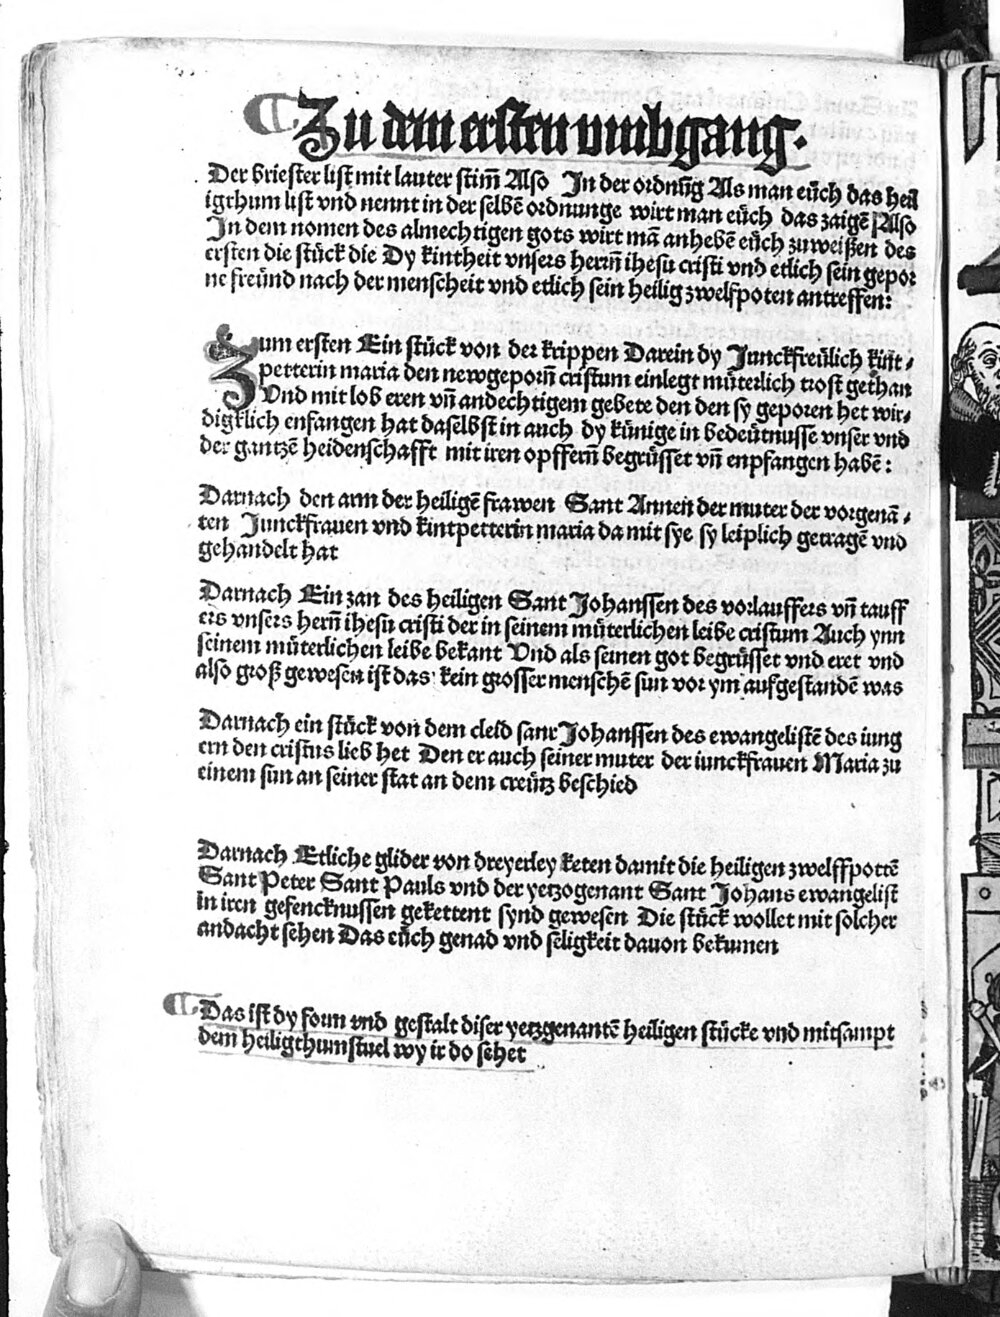 Zu dem ersten vmbgang.
Der briester list mit lauter stim̃ Also In der ordnũg Als man eüch das heil
igthum list vnd nennt in der selbẽ ordnunge wirt man eüch das zaigẽ Also
In dem nomen des almechtigen gots wirt mã anhebẽ eüch zuweißen des
ersten die stück die Dy kintheit vnsers herrñ ihesu cristi vnd etlich sein gepor
ne freünd nach der menscheit vnd etlich sein heilig zwelfpoten antreffen:
Zum ersten Ein stück von der krippen Darein dy Junckfreülich kint⸗
petterin maria den newgeporñ cristum einlegt müterlich trost gethan
Vnd mit lob eren vñ andechtigem gebete den den sy geporen het wir⸗
digklich enfangen hat daselbst in auch dy künige in bedeütnusse vnser vnd
der gantzẽ heidenschafft mit iren opfferñ begrüsset vñ enpfangen habẽ:
Darnach den arm der heiligẽ frawen Sant Annen der muter der vorgenã⸗
ten Junckfrauen vnd kintpetterin maria da mit sye sy leiplich getragẽ vnd
gehandelt hat
Darnach Ein zan des heiligen Sant Johanssen des vorlauffers vñ tauff
ers vnsers herñ ihesu cristi der in seinem müterlichen leibe cristum Auch ynn
seinem müterlichen leibe bekant Vnd als seinen got begrüsset vnd eret vnd
also groß gewesen ist das kein grosser menschẽ sun vor ym aufgestandẽ was
Darnach ein stück von dem cleid sant Johanssen des ewangelistẽ des iung
ern den cristus lieb het Den er auch seiner muter der iunckfrauen Maria zu
einem sun an seiner stat an dem creütz beschied
Darnach Etliche glider von dreyerley keten damit die heiligen zwelffpottẽ
Sant Peter Sant Pauls vnd der yetzogenant Sant Johans ewangelist
in iren gefencknussen gekettent synd gewesen Die stück wollet mit solcher
andacht sehen Das eüch genad vnd seligkeit dauon bekumen
Das ist dy form vnd gestalt diser yetzgenantẽ heiligen stücke vnd mitsampt
dem heiligthumstuel wy ir do sehet